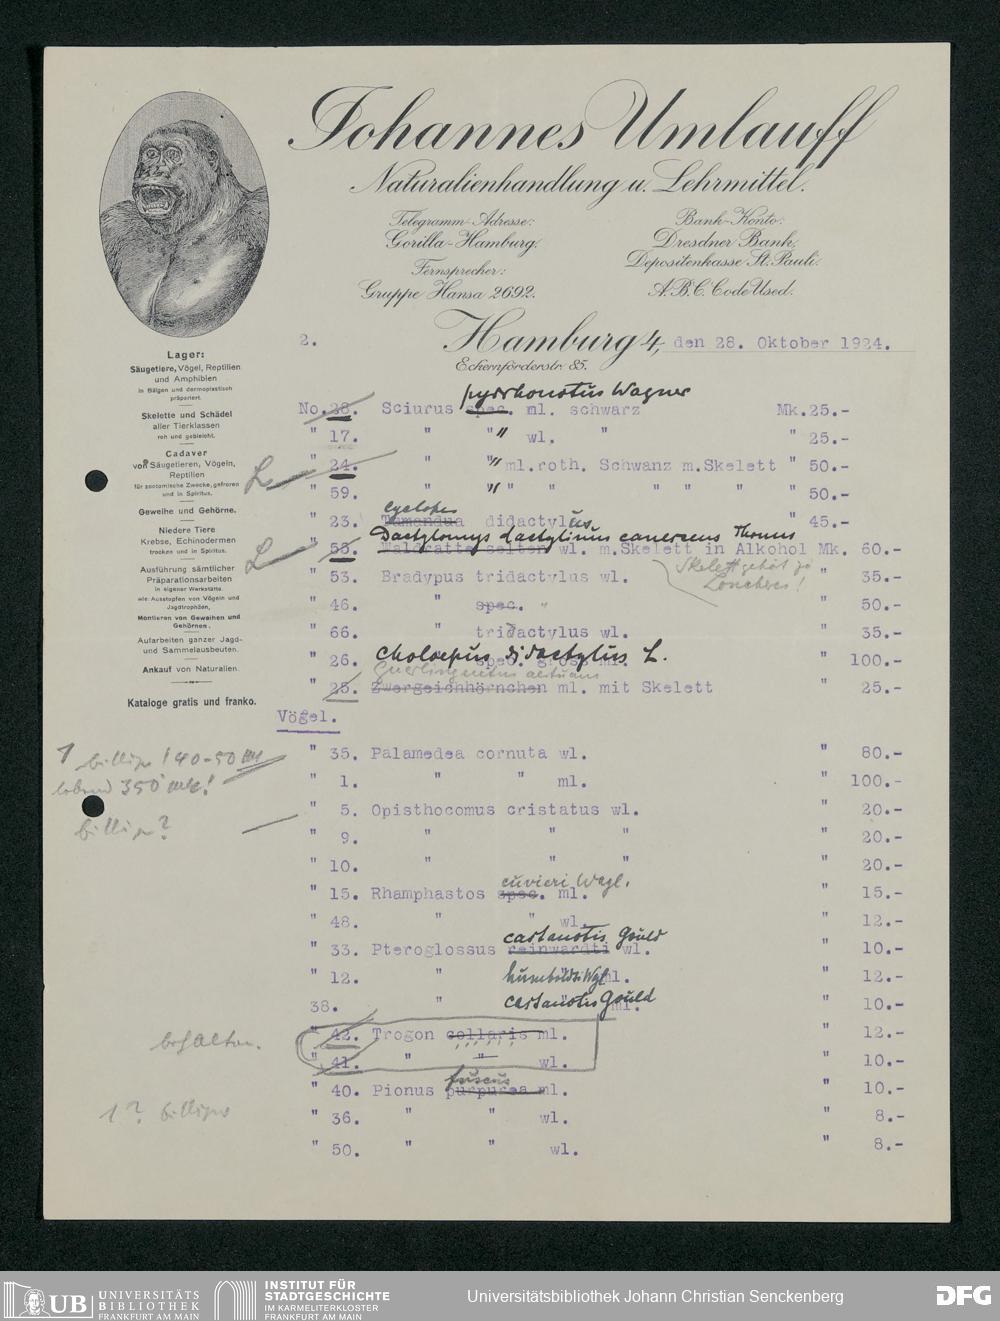 Johannes Umlauff
Naturalienhandlung u. Lehrmittel.
Telegramm-Adresse:
Gorilla-Hamburg.
Fernsprecher:
Gruppe Hansa 2692.
Bank-Konto:
Dresdner Bank,
Depositenkasse St. Pauli.
A.B.C. Code Used.
2.
Hamburg 4, den 28. Oktober 1924.
Eckernförderstr. 85.
Lager:
Säugetiere, Vögel, Reptilien
und Amphibien
in Bälgen und dermoplastisch
präpariert.
Skelette und Schädel
aller Tierklassen
roh und gebleicht.
Cadaver
von Säugetieren, Vögeln,
Reptilien
für zootomische Zwecke, gefroren
und in Spiritus.
Geweihe und Gehörne.
Niedere Tiere
Krebse, Echinodermen
trocken und in Spiritus.
Ausführung sämtlicher
Präparationsarbeiten
in eigener Werkstätte
wie: Ausstopfen von Vögeln und
Jagdtrophäen,
Montieren von Geweihen und
Gehörnen.
Aufarbeiten ganzer Jagd-
und Sammelausbeuten.
Ankauf von Naturalien.
Kataloge gratis und franko.
pyrrhonotus Wagner
No. 28. Sciurus spec. ml. schwarz Mk. 25.-
" 17. " " " wl. " " 25.-
L " 24. " " " ml.roth. Schwanz m.Skelett " 50.-
" 59. " " " " " " " " " 50.-
cyclopes
" 23. Tamandua didactylus " 45.-
Dactylomys dactylinus canescens Thomas
L " 58. Waldratte selten wl. m.Skelett in Alkohol Mk. 60.-
Skelett gehört zu
Loncheres!
" 53. Bradypus tridactylus wl. " 35.-
" 46. " spec. " " 50.-
" 66. " tridactylus wl. " 35.-
Choloepus didactylus L.
" 26. spec. gross " 100.-
Guerlinguetus aestuans
" 25. Zwergeichhörnchen ml. mit Skelett " 25.-
Vögel.
1 billiger! 40-50 Mk
" 35. Palamedea cornuta wl. " 80.-
350 Mk!
" 1. " " ml. " 100.-
" 5. Opisthocomus cristatus wl. " 20.-
billiger?
" 9. " " " " 20.-
" 10. " " " " 20.-
cuvieri Wagl.
" 15. Rhamphastos spec. ml. " 15.-
" 48. " " wl. " 12.-
castanotis Gould
" 33. Pteroglossus reinwardti wl. " 10.-
" 12. " humboldti Wgl ml. " 12.-
38. " castanotis Gould ml. " 10.-
behalten.
" 42. Trogon collaris ml. " 12.-
" 41. " " wl. " 10.-
fuscus
" 40. Pionus purpurea ml. " 10.-
1? billiger
" 36. " " wl. " 8.-
" 50. " " wl. " 8.-
UB UNIVERSITÄTS
BIBLIOTHEK
FRANKFURT AM MAIN
INSTITUT FÜR
STADTGESCHICHTE
IM KARMELITERKLOSTER
FRANKFURT AM MAIN
Universitätsbibliothek Johann Christian Senckenberg
DFG